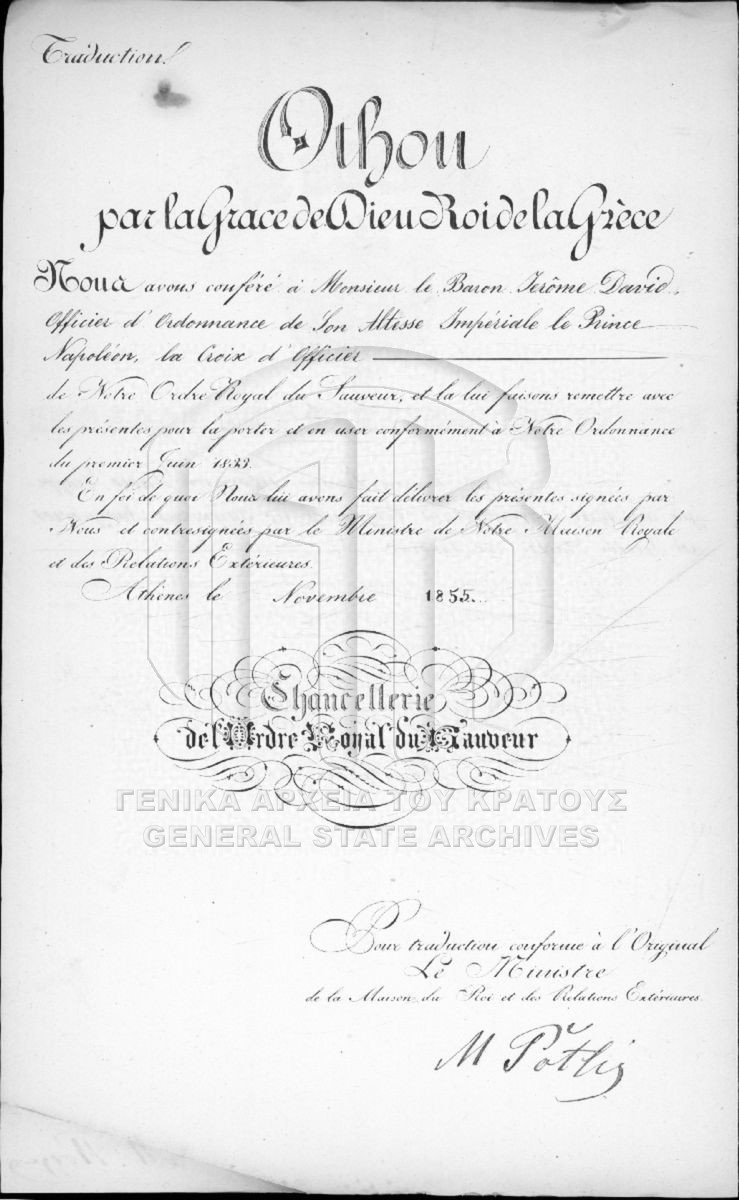 Traduction.
Othon
par la Grace de Dieu Roi de la Grèce
Nous avons conféré à Monsieur le Baron Jerôme David,
Officier d'Ordonnance de Son Altesse Impériale le Prince
Napoléon, la Croix d'Officier
de Notre Ordre Royal du Sauveur, et la lui faisons remettre avec
les présentes pour la porter et en user conformément à Notre Ordonnance
du premier Juin 1833.
En foi de quoi Nous lui avons fait délivrer les présentes signées par
Nous et contresignées par le Ministre de Notre Maison Royale
et des Relations Extérieures.
Athènes le Novembre 1855.
Chancellerie
de l'Ordre Royal du Sauveur
ΓΕΝΙΚΑ ΑΡΧΕΙΑ ΤΟΥ ΚΡΑΤΟΥΣ
GENERAL STATE ARCHIVES
Pour traduction conforme à l'Original
Le Ministre
de la Maison du Roi et des Relations Extérieures
M Potlis